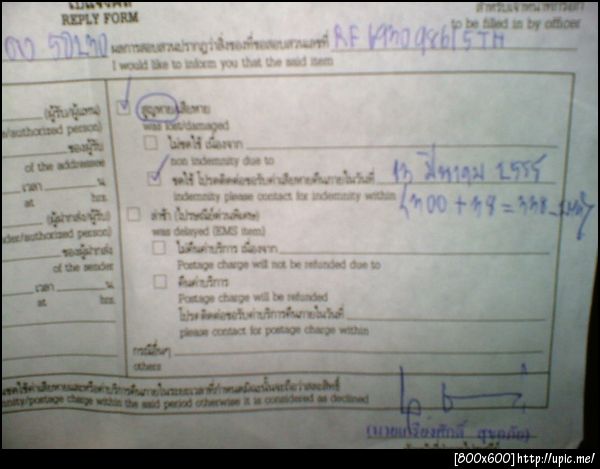 ใบแจ้งผล
สำหรับเจ้าหน้าที่กรอก
REPLY FORM
to be filled in by officer
ผลการสอบสวนปรากฏว่าสิ่งของที่ขอสอบสวนเลขที่
I would like to inform you that the said item
(ผู้รับ/ผู้แทน)
/authorized person)
ของผู้รับ
of the addressee
เวลา น.
at hrs.
(ผู้ฝากส่ง/ผู้รับ)
/authorized person)
ของผู้ฝากส่ง
of the sender
เวลา น.
at hrs.
สูญหาย/เสียหาย
was lost/damaged
ไม่ชดใช้ เนื่องจาก
non indemnity due to
ชดใช้ โปรดติดต่อขอรับค่าเสียหายคืนภายในวันที่ 13 มีนาคม 2555
indemnity please contact for indemnity within (300 + 38 = 338
ล่าช้า (ไปรษณีย์ด่วนพิเศษ)
was delayed (EMS item)
ไม่คืนค่าบริการ เนื่องจาก
Postage charge will not be refunded due to
คืนค่าบริการ
Postage charge will be refunded
โปรดติดต่อขอรับค่าบริการคืนภายในวันที่
please contact for postage charge within
กรณีอื่นๆ
others
ชดใช้ค่าเสียหายและหรือค่าบริการคืนภายในระยะเวลาที่กำหนดมิฉะนั้นจะถือว่าสละสิทธิ์
nity/postage charge within the said period otherwise it is considered as declined
[800x600]http://upic.me/